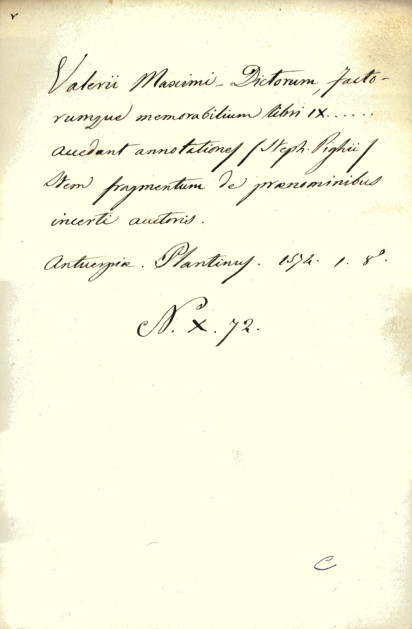 Valerii Maximi - Dictorum, facto-
rumque memorabilium libri IX......
accedant annotationes / Steph. Pighii /
Item fragmentum de prænominibus
incerti auctoris.
Antuerpiæ. Plantinus. 1574. 1. 8º
N. X. 72.
C